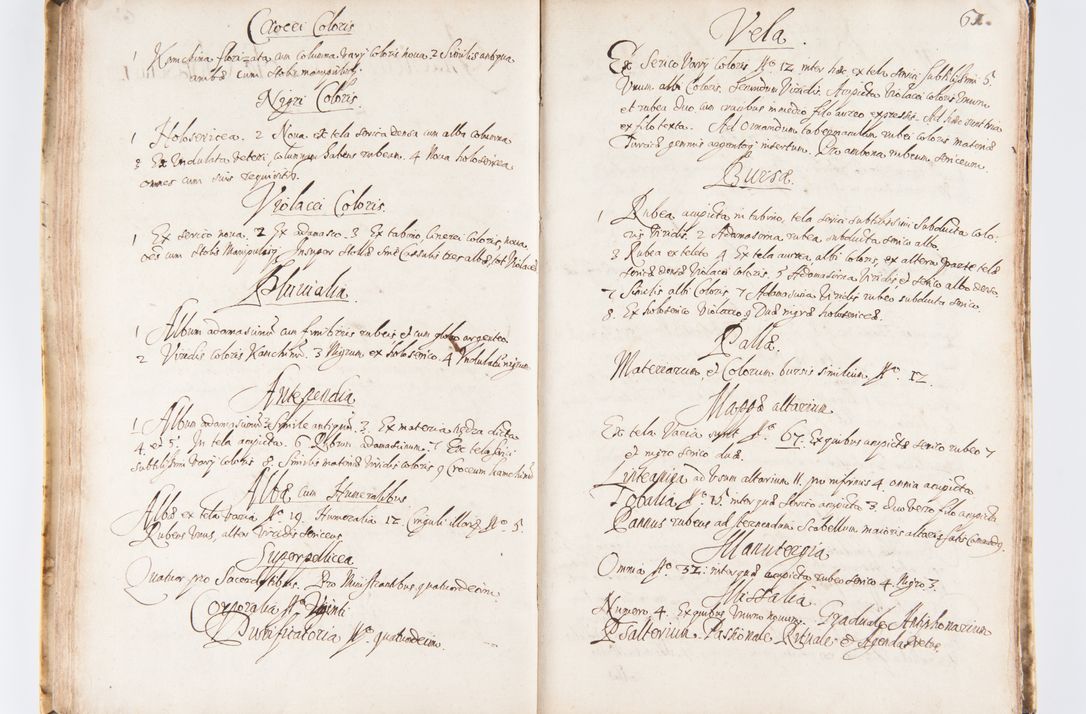 Crocei Coloris
1 Kamchina florizata cum columna varij coloris nova. 2 Similis antiqua
ambæ cum stolis manipularibq
Nigri Coloris.
1 Holosericea. 2 Nova ex tela serica densa cum alba columna
3 Ex Undulata vetere, columnam habens rubeam. 4 Nova holosericea
omnes cum suis requisitis.
Violacei Coloris.
1 Ex serico nova. 2 Ex adamasco. 3 Ex tabino, Cinerei Coloris, nova.
oēs cum stolis Manipularibq. Insuper Stolæ sine Casulis tres albæ, tot violaceæ
Pluvialia
1 Album adamascinum cum fimbriis rubeis et cum globo argenteo
2 Viridis coloris Kanchinū. 3 Nigrum, ex holoserico. 4 Undulatū nigrum
Antependia
1 Album adamascinū 2 Simile antiquū. 3. Ex materia dicta
4. et 5. In tela acupicta. 6 Rubeum adamascinum. 7 Ex tela serici
subtilissimi varij coloris 8. Similis materiæ viridis coloris 9 Croceum kamchinū
Albæ cum Humeralibus
Albæ ex tela varia Nº 19. Humeralia 12. Cinguli Nº 5.
Rubeus unus, alter viridis sericeus
Superpellicea
Quatuor pro Sacerdotibus. Pro Ministrantibus quatuordecim
Corporalia Nº Viginti
Purificatoria Nº quatuordecim
61.
Vela.
Ex Serico Varij Coloris Nº 12 inter hæc ex tela serici subtilissimi 5.
Unum albi Coloris. Secundum Viridis. Acupicta violacei coloris unum
et rubea duo cum crucibus in medio filo aureo expressis. Ad hæc sunt tria
ex filo texta. Ad Ornandum tabernaculum rubei coloris materiæ
Turcicæ gemmis argenteq insertum. Pro ambona rubeum sericeum
Bursæ.
1 Rubea acupicta in tabino, tela serici subtilissimi subducta colo-
ris viridis. 2 Adamascina rubea subducta serico albo.
3 Rubea ex teleto 4 Ex tela aurea, albi coloris, ex altera parte tela
sericæ densæ violacei coloris. 5 Adamascina viridis et serico albo denso.
7 Similis albi Coloris 7 Adamascina viridis rubeo subducta serico.
8. Ex holoserico violaceo 9 Duæ nigræ holosericeæ.
Pallæ.
Materiarum, et Colorum bursis similium Nº. 12.
Mappæ altarium
Ex tela Varia sunt Nº. 67. Ex quibus acupictæ serico rubeo 7
et nigro serico duæ.
Linteamina ad usum altarium 11. pro infirmis 4 omnia acupicta
Tobalia Nº 15. inter quæ serico acupicta 3. duo vero filo acupicta
Pannus rubeus ad sternendam Scabellum maioris altaris satis
Manutergia
Omnia Nº 32. inter quæ acupicta rubeo serico 4. Nigro 3.
Missalia
Numero 4. Ex quibus unum novum. Graduale Antiphonarium
Psalterium Passionale Rituale et Agenda vetus